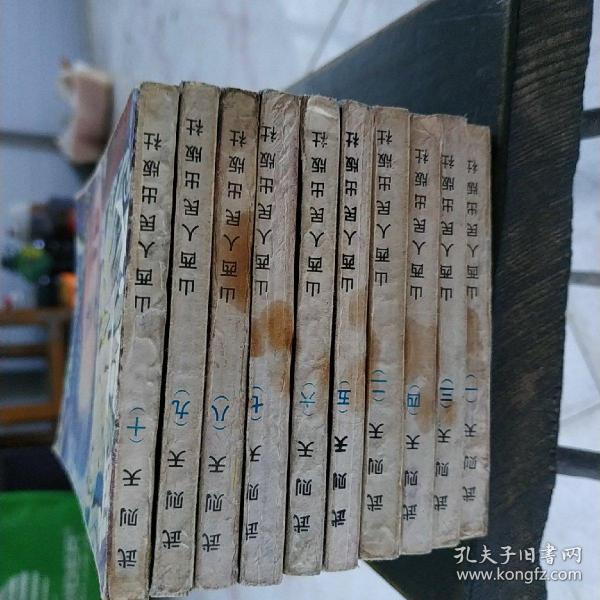 武则天（十）山西人民出版社
武则天（九）山西人民出版社
武则天（八）山西人民出版社
武则天（七）山西人民出版社
武则天（六）山西人民出版社
武则天（五）山西人民出版社
武则天（二）山西人民出版社
武则天（四）山西人民出版社
武则天（三）山西人民出版社
武则天（一）山西人民出版社
孔夫子旧书网
www.kongfz.com